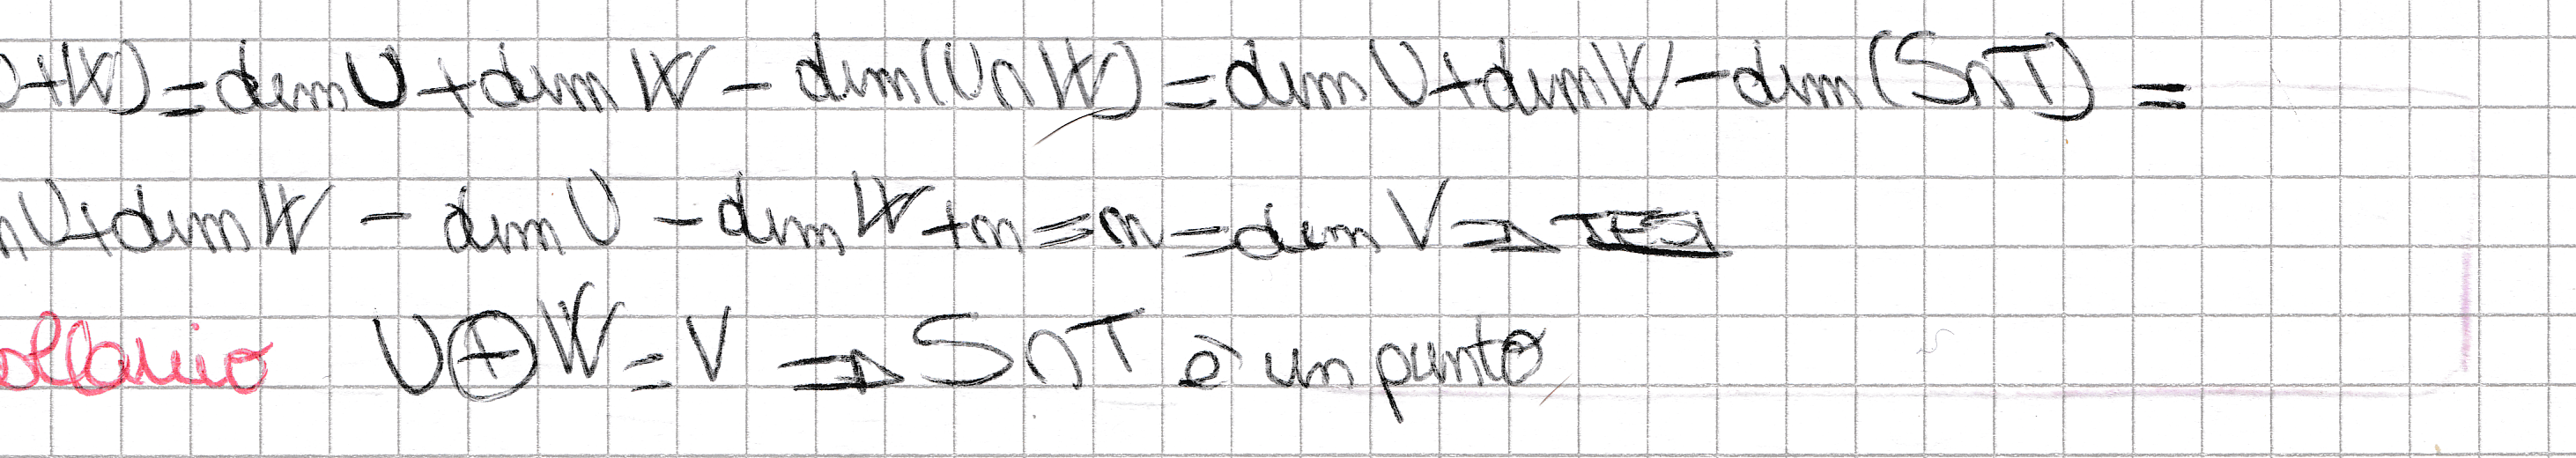 U+W) = dim U + dim W - dim(U∩W) = dim U + dim W - dim (S∩T) =
m U + dim W - dim U - dim W + n = n = dim V ⇒ TESI
ollario U⊕W = V ⇒ S∩T è un punto